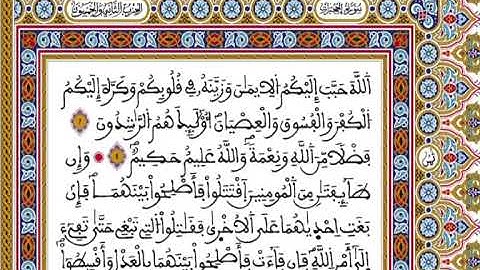 سورة الحجرات
الحزب الثاني والخمسون
اَللَّهَ حَبَّبَ إِلَيْكُمُ اُلِايمَٰنَ وَزَيَّنَهُۥ فِي قُلُوبِكُمْ وَكَرَّهَ إِلَيْكُمُ
اُلْكُفْرَ وَالْفُسُوقَ وَالْعِصْيَانَ أُوْلَٰٓئِكَ هُمُ اُلرَّٰشِدُونَ
فَضْلاً مِّنَ اَللَّهِ وَنِعْمَةً وَاللَّهُ عَلِيمٌ حَكِيمٌ وَإِن
طَآئِفَتَٰنِ مِنَ اَلْمُومِنِينَ اَقْتَتَلُواْ فَأَصْلِحُواْ بَيْنَهُمَا فَإِنۢ
بَغَتِ اِحْدَىٰهُمَا عَلَى اَلُاخْرَىٰ فَقَٰتِلُواْ اُلتِي تَبْغِي حَتَّىٰ تَفِيٓءَ
اِلَىٰٓ أَمْرِ اِللَّهِ فَإِن فَآءَتْ فَأَصْلِحُواْ بَيْنَهُمَا بِالْعَدْلِ وَأَقْسِطُوٓاْ